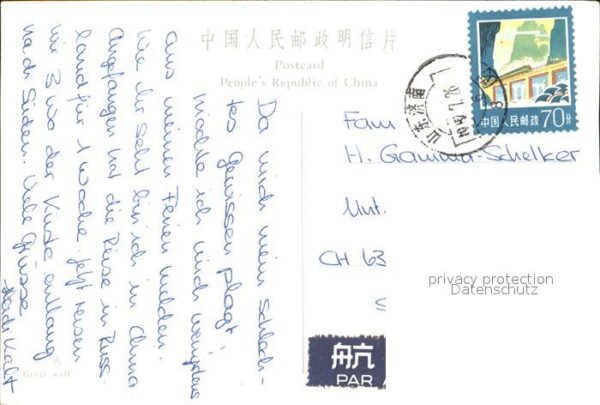 中国人民邮政明信片
Postcard
People's Republic of China
Da mich mein schlech-
tes Gewissen plagt,
möchte ich mich wenigstens
aus meinen Ferien melden.
Wie ihr seht bin ich in China.
Angefangen hat die Reise in Russ-
land für 1 Woche. Jetzt reisen
wir 3 Wo der Küste entlang
nach Süden. Viele Grüsse
Heidi Kalt
Great wall
中国人民邮政 70分
山东济南
Fam
H. Gamma-Schelker
Unt.
CH 63
privacy protection
Datenschutz
航
PAR